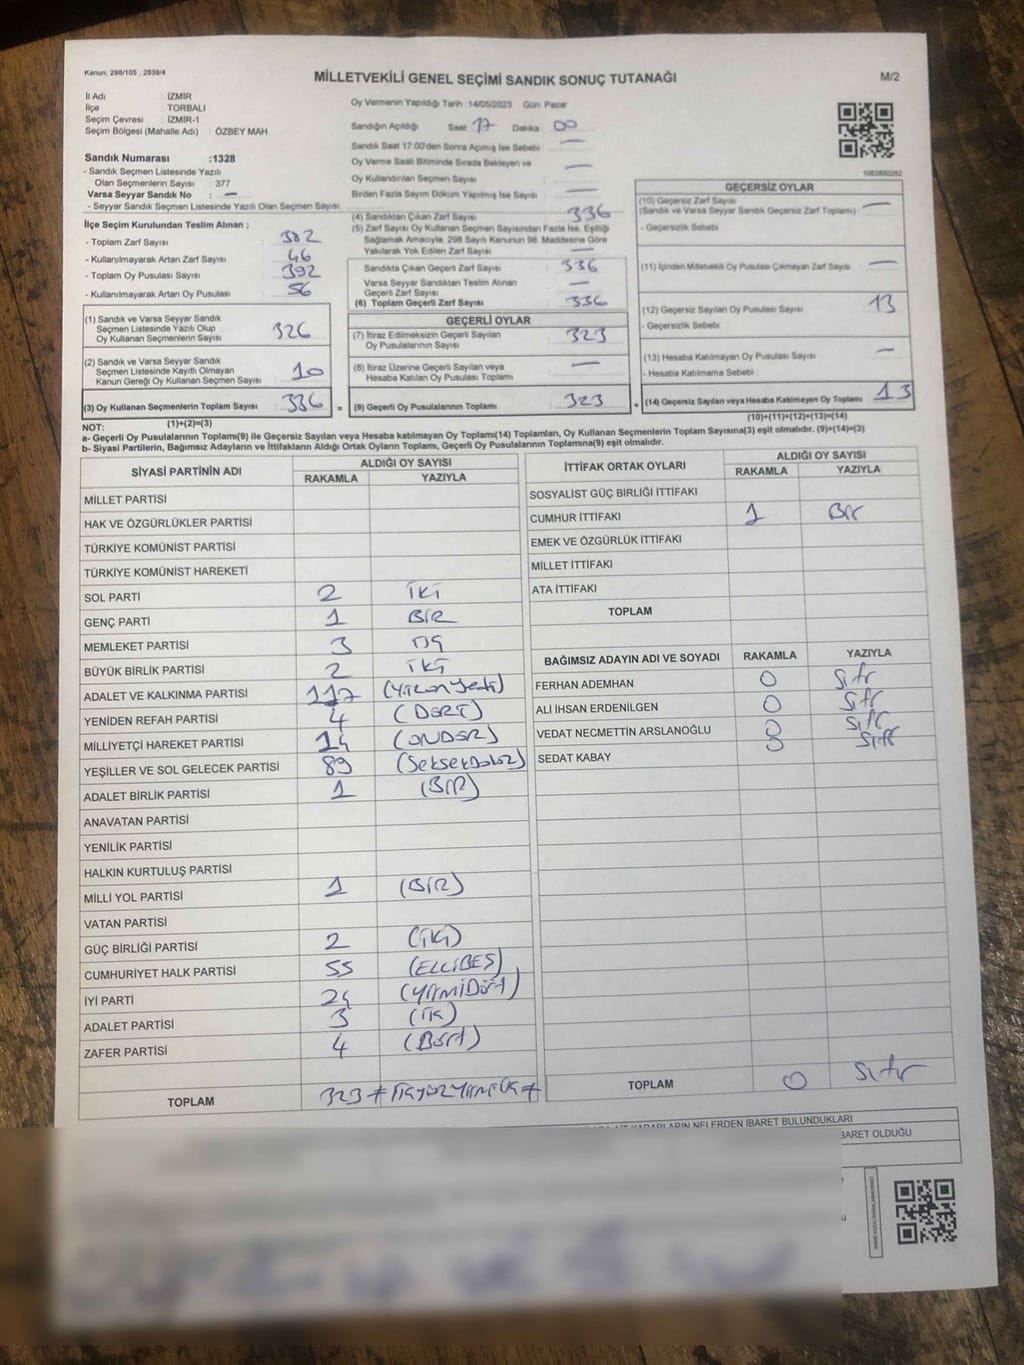 Kanun: 298/105 , 2839/4
MİLLETVEKİLİ GENEL SEÇİMİ SANDIK SONUÇ TUTANAĞI
M/2
İl Adı : İZMİR
İlçe : TORBALI
Seçim Çevresi : İZMİR-1
Seçim Bölgesi (Mahalle Adı) : ÖZBEY MAH.
Sandık Numarası :1328
- Sandık Seçmen Listesinde Yazılı
Olan Seçmenlerin Sayısı : 377
Varsa Seyyar Sandık No : —
- Seyyar Sandık Seçmen Listesinde Yazılı Olan Seçmen Sayısı
Oy Vermenin Yapıldığı Tarih :14/05/2023 Gün: Pazar
Sandığın Açıldığı Saat 17 Dakika 00
Sandık Saat 17:00'den Sonra Açımış İse Sebebi —
Oy Verme Saati Bitiminde Sırada Bekleyen ve
Oy Kullandırılan Seçmen Sayısı —
Birden Fazla Sayım Döküm Yapılmış İse Sayısı —
İlçe Seçim Kurulundan Teslim Alınan ;
- Toplam Zarf Sayısı : 382
- Kullanılmayarak Artan Zarf Sayısı : 46
- Toplam Oy Pusulası Sayısı : 392
- Kullanılmayarak Artan Oy Pusulası : 56
(1) Sandık ve Varsa Seyyar Sandık
Seçmen Listesinde Yazılı Olup
Oy Kullanan Seçmenlerin Sayısı : 326
(2) Sandık ve Varsa Seyyar Sandık
Seçmen Listesinde Kayıtlı Olmayan
Kanun Gereği Oy Kullanan Seçmen Sayısı : 10
(3) Oy Kullanan Seçmenlerin Toplam Sayısı : 336
(1)+(2)=(3)
(4) Sandıktan Çıkan Zarf Sayısı 336
(5) Zarf Sayısı Oy Kullanan Seçmen Sayısından Fazla İse, Eşitliği
Sağlamak Amacıyla, 298 Sayılı Kanunun 98. Maddesine Göre
Yakılarak Yok Edilen Zarf Sayısı —
Sandıkta Çıkan Geçerli Zarf Sayısı 336
Varsa Seyyar Sandıktan Teslim Alınan
Geçerli Zarf Sayısı —
(6) Toplam Geçerli Zarf Sayısı 336
GEÇERLİ OYLAR
(7) İtiraz Edilmeksizin Geçerli Sayılan
Oy Pusulalarının Sayısı 323
(8) İtiraz Üzerine Geçerli Sayılan veya
Hesaba Katılan Oy Pusulası Toplamı —
= (9) Geçerli Oy Pusulalarının Toplamı : 323
1083800292
GEÇERSİZ OYLAR
(10) Geçersiz Zarf Sayısı
(Sandık ve Varsa Seyyar Sandık Geçersiz Zarf Toplamı) —
- Geçersizlik Sebebi
(11) İçinden Milletvekili Oy Pusulası Çıkmayan Zarf Sayısı —
(12) Geçersiz Sayılan Oy Pusulası Sayısı 13
- Geçersizlik Sebebi
(13) Hesaba Katılmayan Oy Pusulası Sayısı —
- Hesaba Katılmama Sebebi
+ (14) Geçersiz Sayılan veya Hesaba Katılmayan Oy Toplamı 13
(10)+(11)+(12)+(13)=(14)
NOT:
a- Geçerli Oy Pusulalarının Toplamı(9) ile Geçersiz Sayılan veya Hesaba katılmayan Oy Toplamı(14) Toplamları, Oy Kullanan Seçmenlerin Toplam Sayısına(3) eşit olmalıdır. (9)+(14)=(3)
b- Siyasi Partilerin, Bağımsız Adayların ve İttifakların Aldığı Ortak Oyların Toplamı, Geçerli Oy Pusulalarının Toplamına(9) eşit olmalıdır.
SİYASİ PARTİNİN ADI ALDIĞI OY SAYISI
RAKAMLA YAZIYLA
MİLLET PARTİSİ
HAK VE ÖZGÜRLÜKLER PARTİSİ
TÜRKİYE KOMÜNİST PARTİSİ
TÜRKİYE KOMÜNİST HAREKETİ
SOL PARTİ 2 İKİ
GENÇ PARTİ 1 BİR
MEMLEKET PARTİSİ 3 ÜÇ
BÜYÜK BİRLİK PARTİSİ 2 İKİ
ADALET VE KALKINMA PARTİSİ 117
YENİDEN REFAH PARTİSİ 4 (DÖRT)
MİLLİYETÇİ HAREKET PARTİSİ 14
YEŞİLLER VE SOL GELECEK PARTİSİ 89 (Seksekdokuz)
ADALET BİRLİK PARTİSİ 1 (BİR)
ANAVATAN PARTİSİ
YENİLİK PARTİSİ
HALKIN KURTULUŞ PARTİSİ
MİLLİ YOL PARTİSİ 1 (BİR)
VATAN PARTİSİ
GÜÇ BİRLİĞİ PARTİSİ 2 (İKİ)
CUMHURİYET HALK PARTİSİ 55 (ELLİBEŞ)
İYİ PARTİ 24 (YİRMİDÖRT)
ADALET PARTİSİ 3
ZAFER PARTİSİ 4 (Dört)
TOPLAM 323
İTTİFAK ORTAK OYLARI ALDIĞI OY SAYISI
RAKAMLA YAZIYLA
SOSYALİST GÜÇ BİRLİĞİ İTTİFAKI
CUMHUR İTTİFAKI 1 Bir
EMEK VE ÖZGÜRLÜK İTTİFAKI
MİLLET İTTİFAKI
ATA İTTİFAKI
TOPLAM
BAĞIMSIZ ADAYIN ADI VE SOYADI RAKAMLA YAZIYLA
FERHAN ADEMHAN 0 Sıfır
ALİ İHSAN ERDENİLGEN 0 Sıfır
VEDAT NECMETTİN ARSLANOĞLU 0 Sıfır
SEDAT KABAY 0 Sıfır
TOPLAM 0 Sıfır
NELERDEN İBARET BULUNDUKLARI
İBARET OLDUĞU